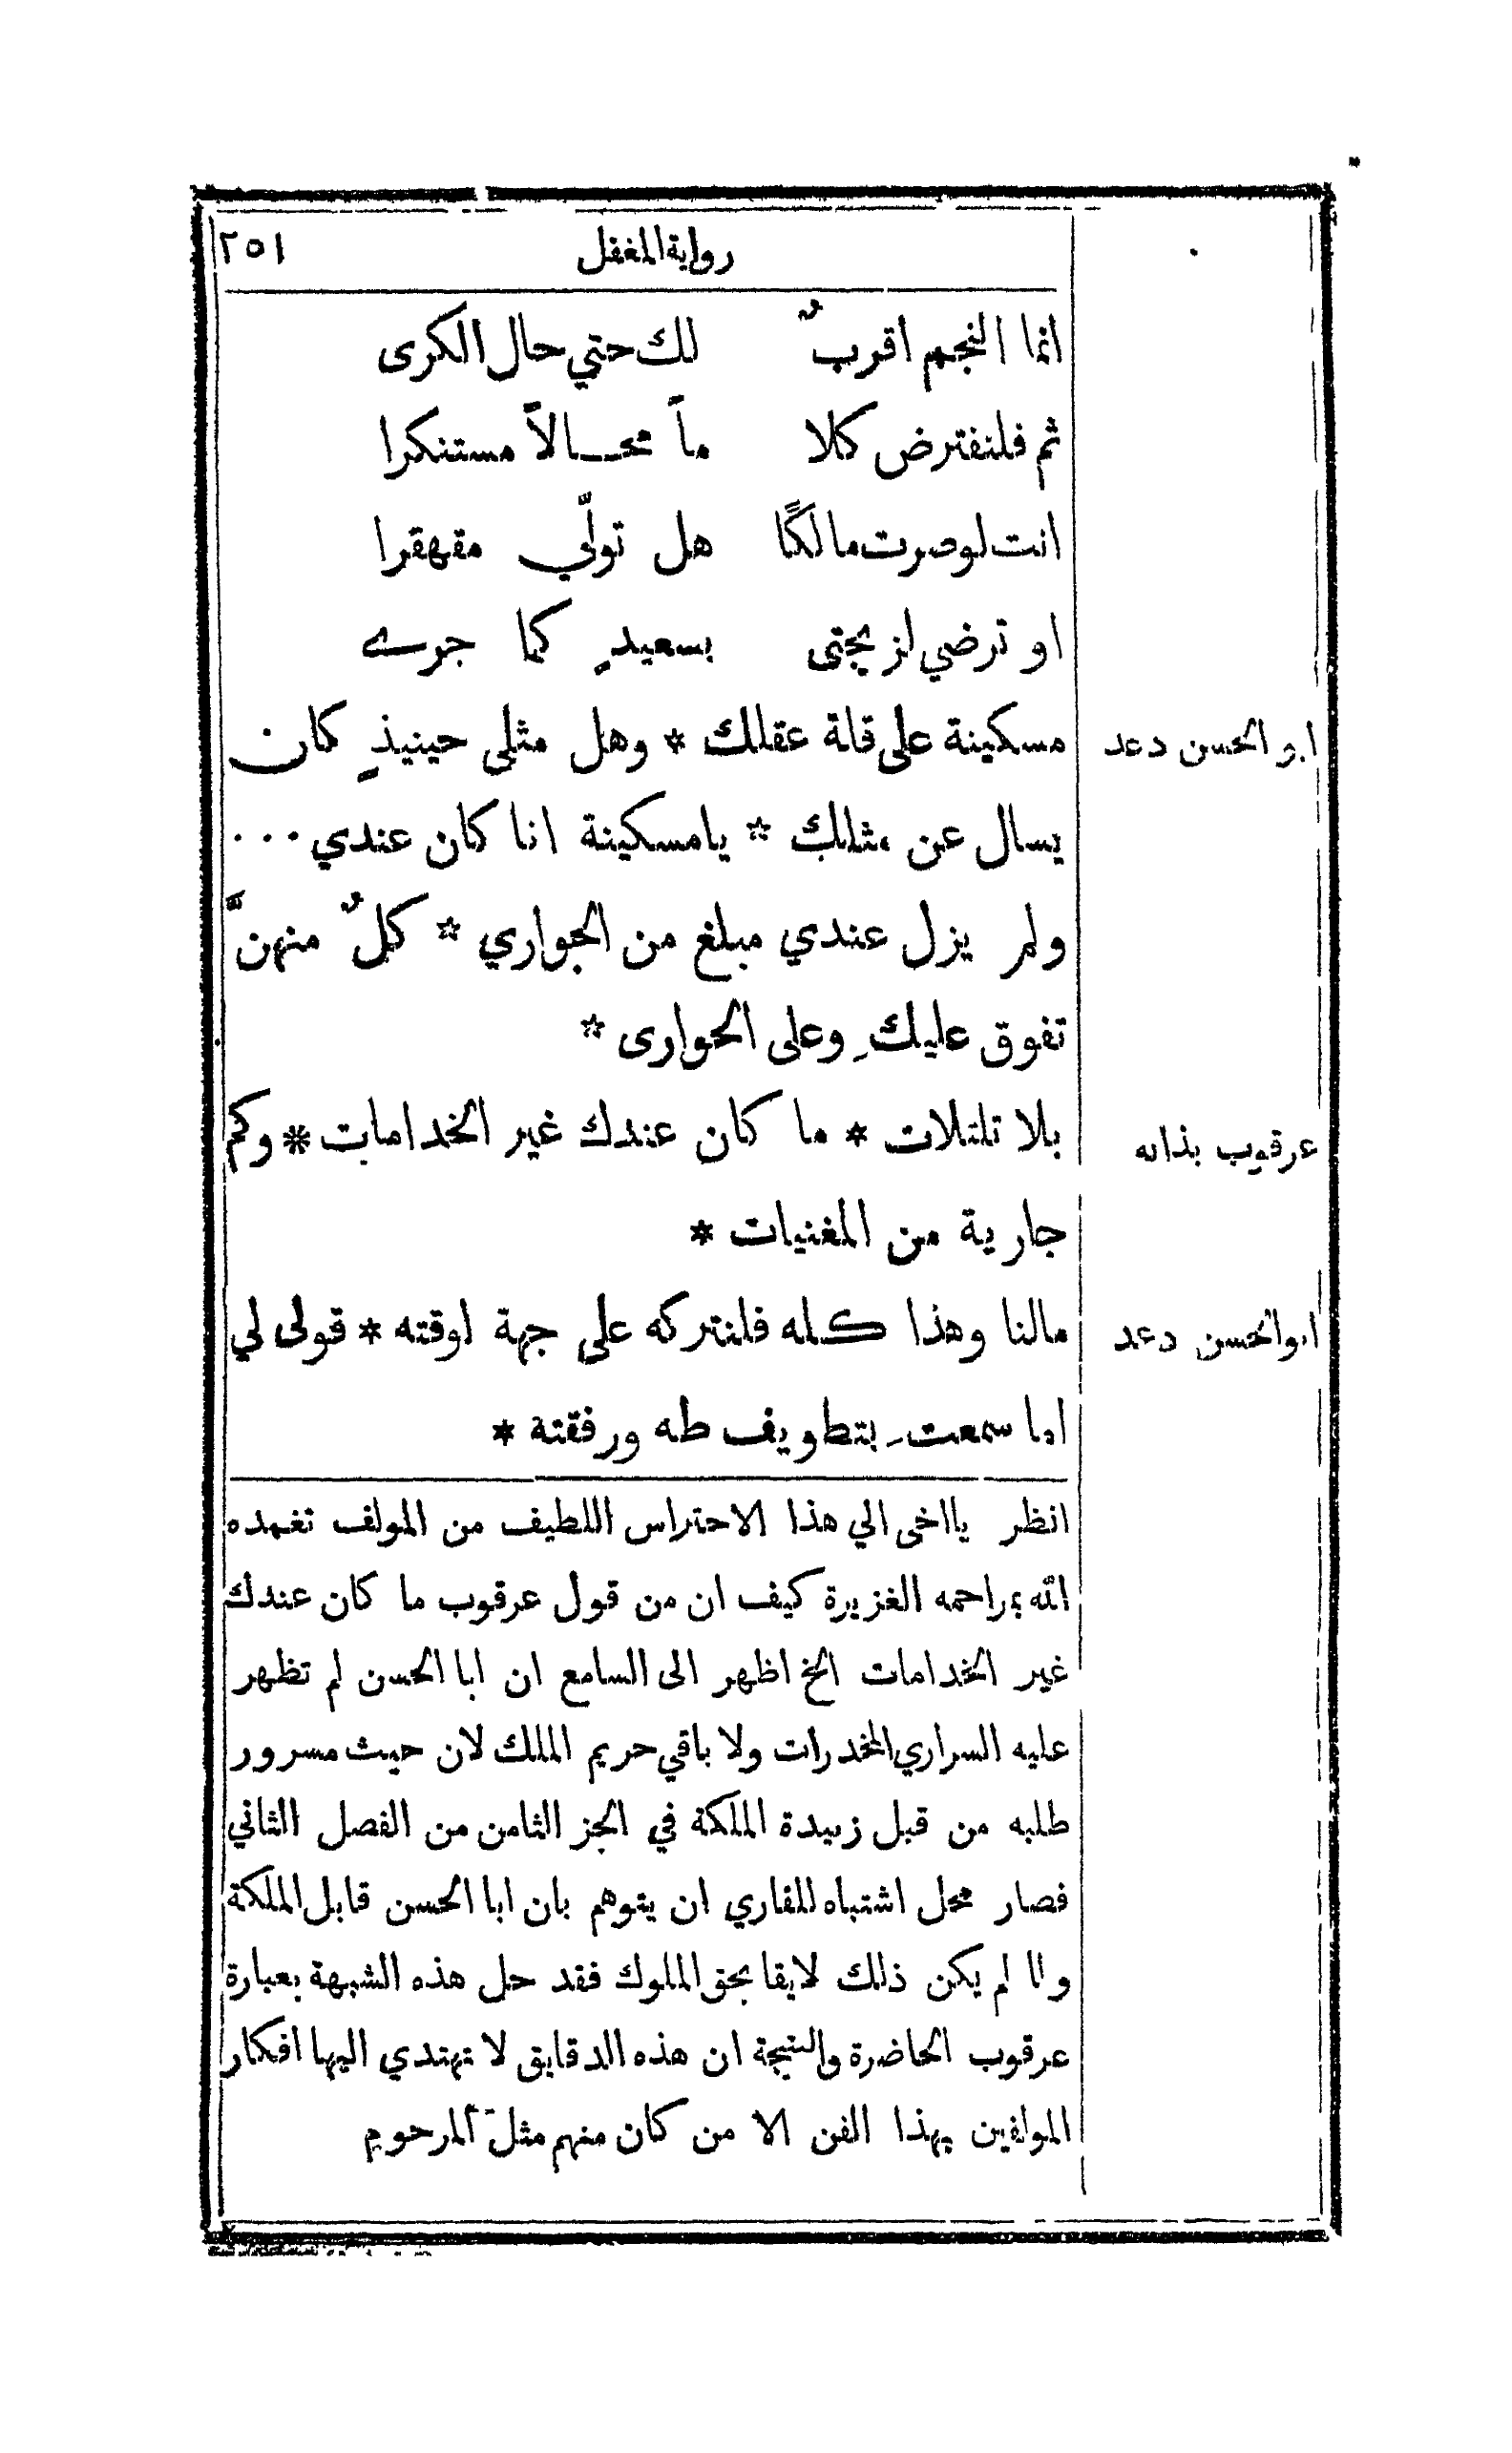 رواية المغفل ٢٥١
انما النجم اقربٌ لك حتي حال الكرى
ثم فلنفترض كلا ماً محـــالاً مستنكرا
انت لو صرت مالكًا هل تولّي مقهقرا
او ترضي لزيجتى بسعيدٍ كما جرے
ابو الحسن دعد مسكينة على قلة عقلك * وهل مثلى حينيذٍ كان
يسال عن مثلك * يامسكينة انا كان عندي ...
ولم يزل عندي مبلغ من الجواري * كلٌ منهنَّ
تفوق عليكِ وعلى الحوارى *
عرقوب بذاته بلا تلتلات * ما كان عندك غير الخدامات * وكم
جارية من المغنيات *
ابوالحسن دعد مالنا وهذا كله فلنتركه على جهة لوقته * قولى لي
اما سمعتِ بتطويف طه ورفقته *
انظر يااخى الي هذا الاحتراس اللطيف من المولف تغمده
الله بمراحمه الغزيرة كيف ان من قول عرقوب ما كان عندك
غير الخدامات الخ اظهر الى السامع ان ابا الحسن لم تظهر
عليه السراري المخدرات ولا باقي حريم الملك لان حيث مسرور
طلبه من قبل زبيدة الملكة في الجز الثامن من الفصل الثاني
فصار محل اشتباه للقاري ان يتوهم بان ابا الحسن قابل الملكة
ولما لم يكن ذلك لايقا بحق الملوك فقد حل هذه الشبهة بعبارة
عرقوب الحاضرة والنتيجة ان هذه الدقايق لا تهتدي اليها افكار
المولفين بهذا الفن الا من كان منهم مثل المرحوم